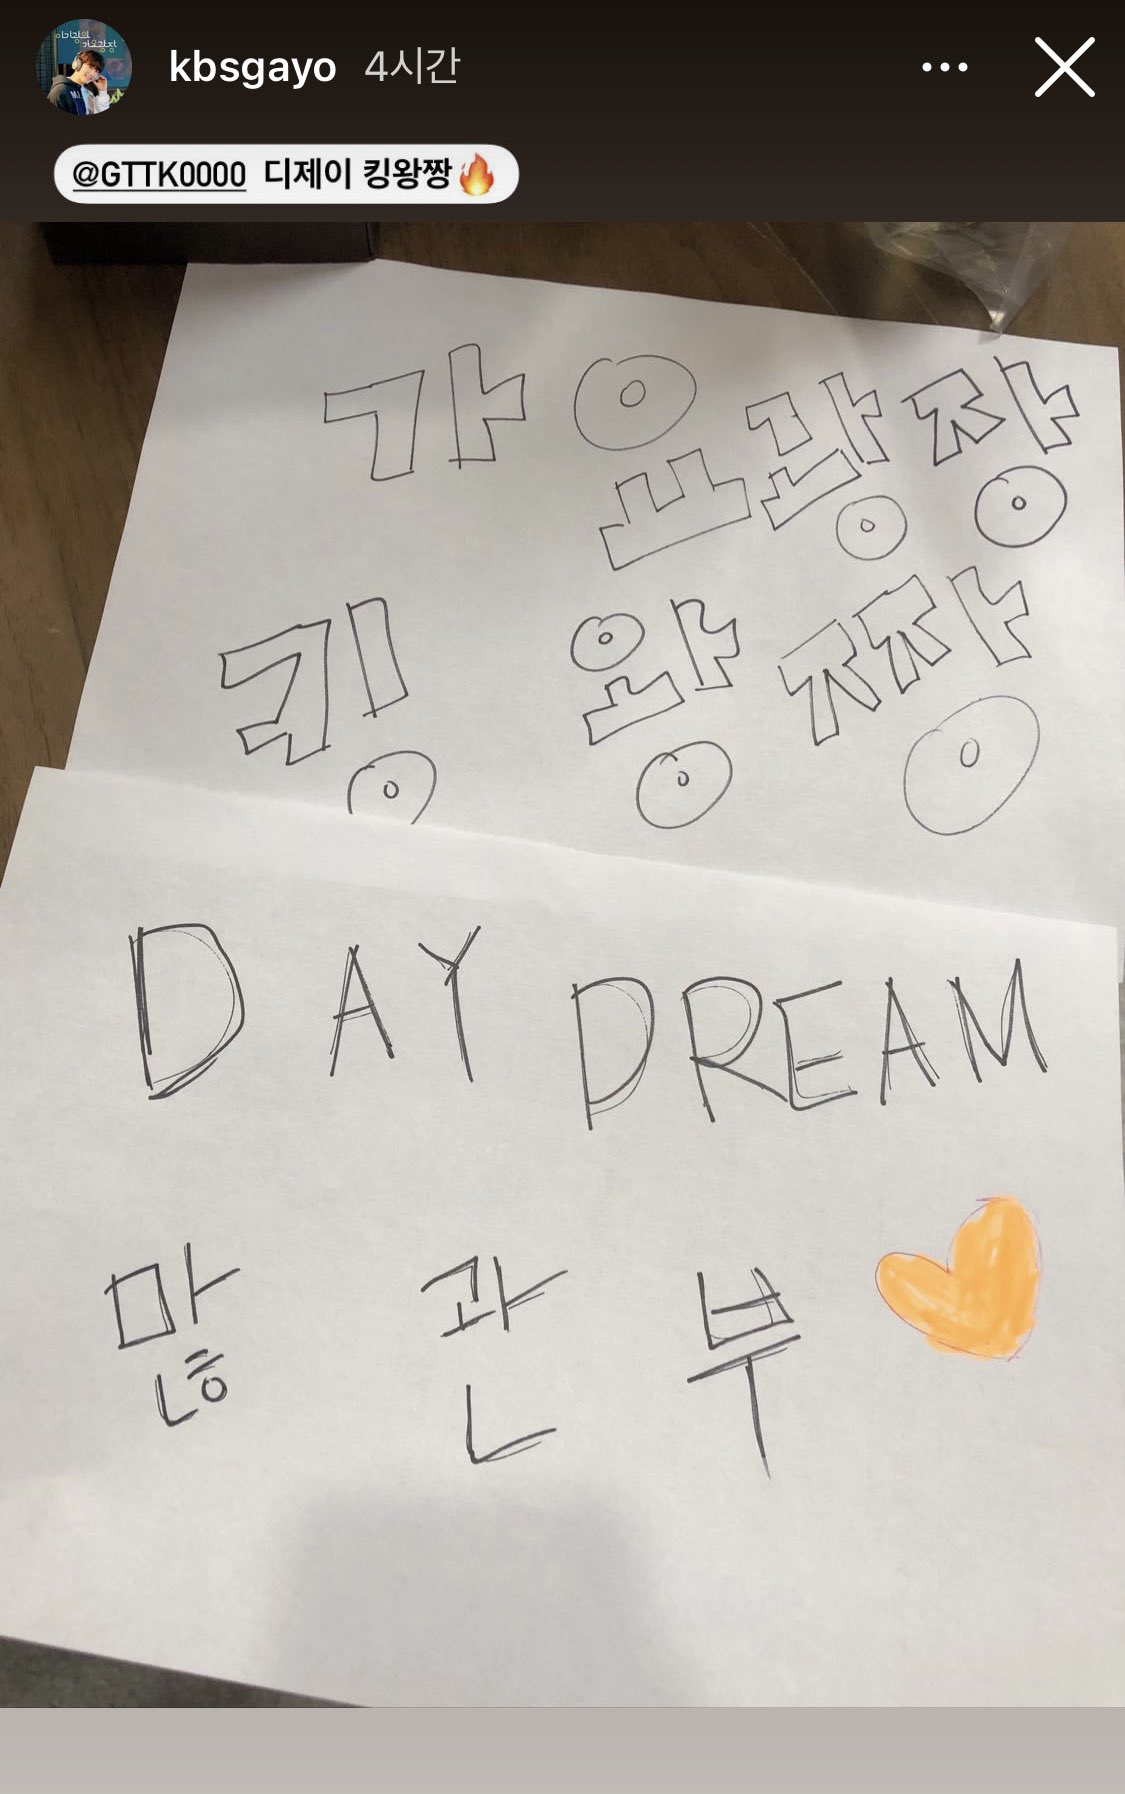 kbsgayo 4시간
@GTTK0000 디제이 킹왕짱🔥
가요광장
킹왕짱
DAY DREAM
많관부